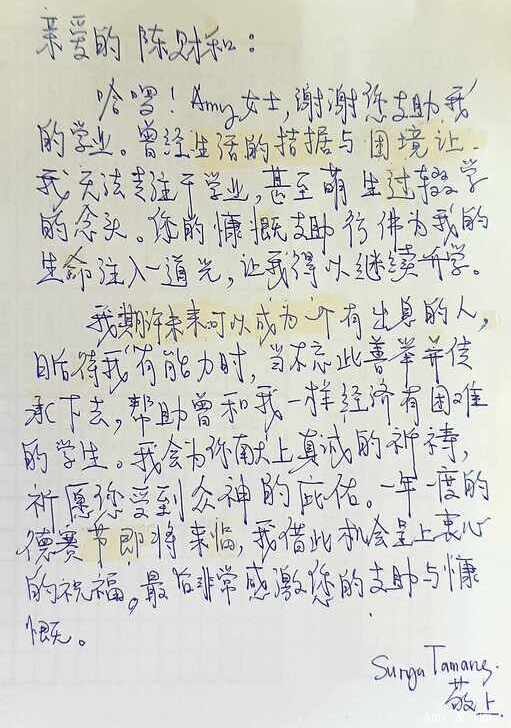 亲爱的 陈财和：
哈啰！Amy女士，谢谢您支助我
的学业。曾经生活的拮据与困境让
我无法专注于学业，甚至萌生过辍学
的念头。您的慷慨支助仿佛为我的
生命注入一道光，让我得以继续升学。
我期许未来可以成为一个有出息的人，
日后待我有能力时，当不忘此善举并传
承下去，帮助曾和我一样经济有困难
的学生。我会为你献上真诚的祈祷，
祈愿您受到众神的庇佑。一年一度的
德赛节即将来临，我借此机会呈上衷心
的祝福。最后非常感激您的支助与慷
慨。
Surya Tamang.
敬上